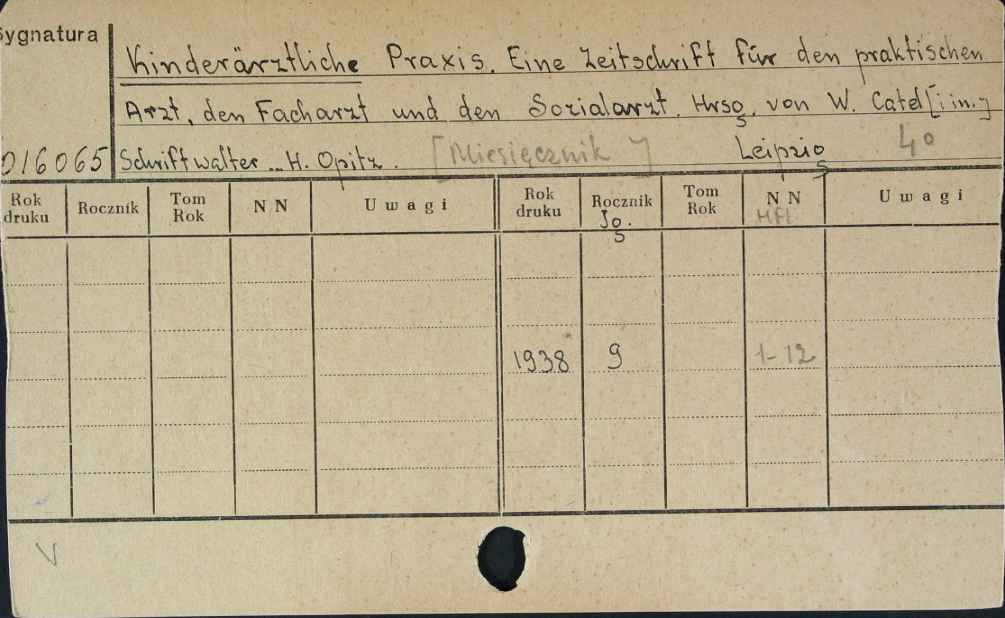 Sygnatura
Kinderärztliche Praxis. Eine Zeitschrift für den praktischen
Arzt, den Facharzt und den Sozialarzt. Hrsg. von W. Catel [i in.]
016065 Schriftwalter H. Opitz. [Miesięcznik] Leipzig 4o
Rok druku Rocznik Tom Rok NN Uwagi Rok druku Rocznik Jg. Tom Rok NN Hft Uwagi
1938 9 1-12
V